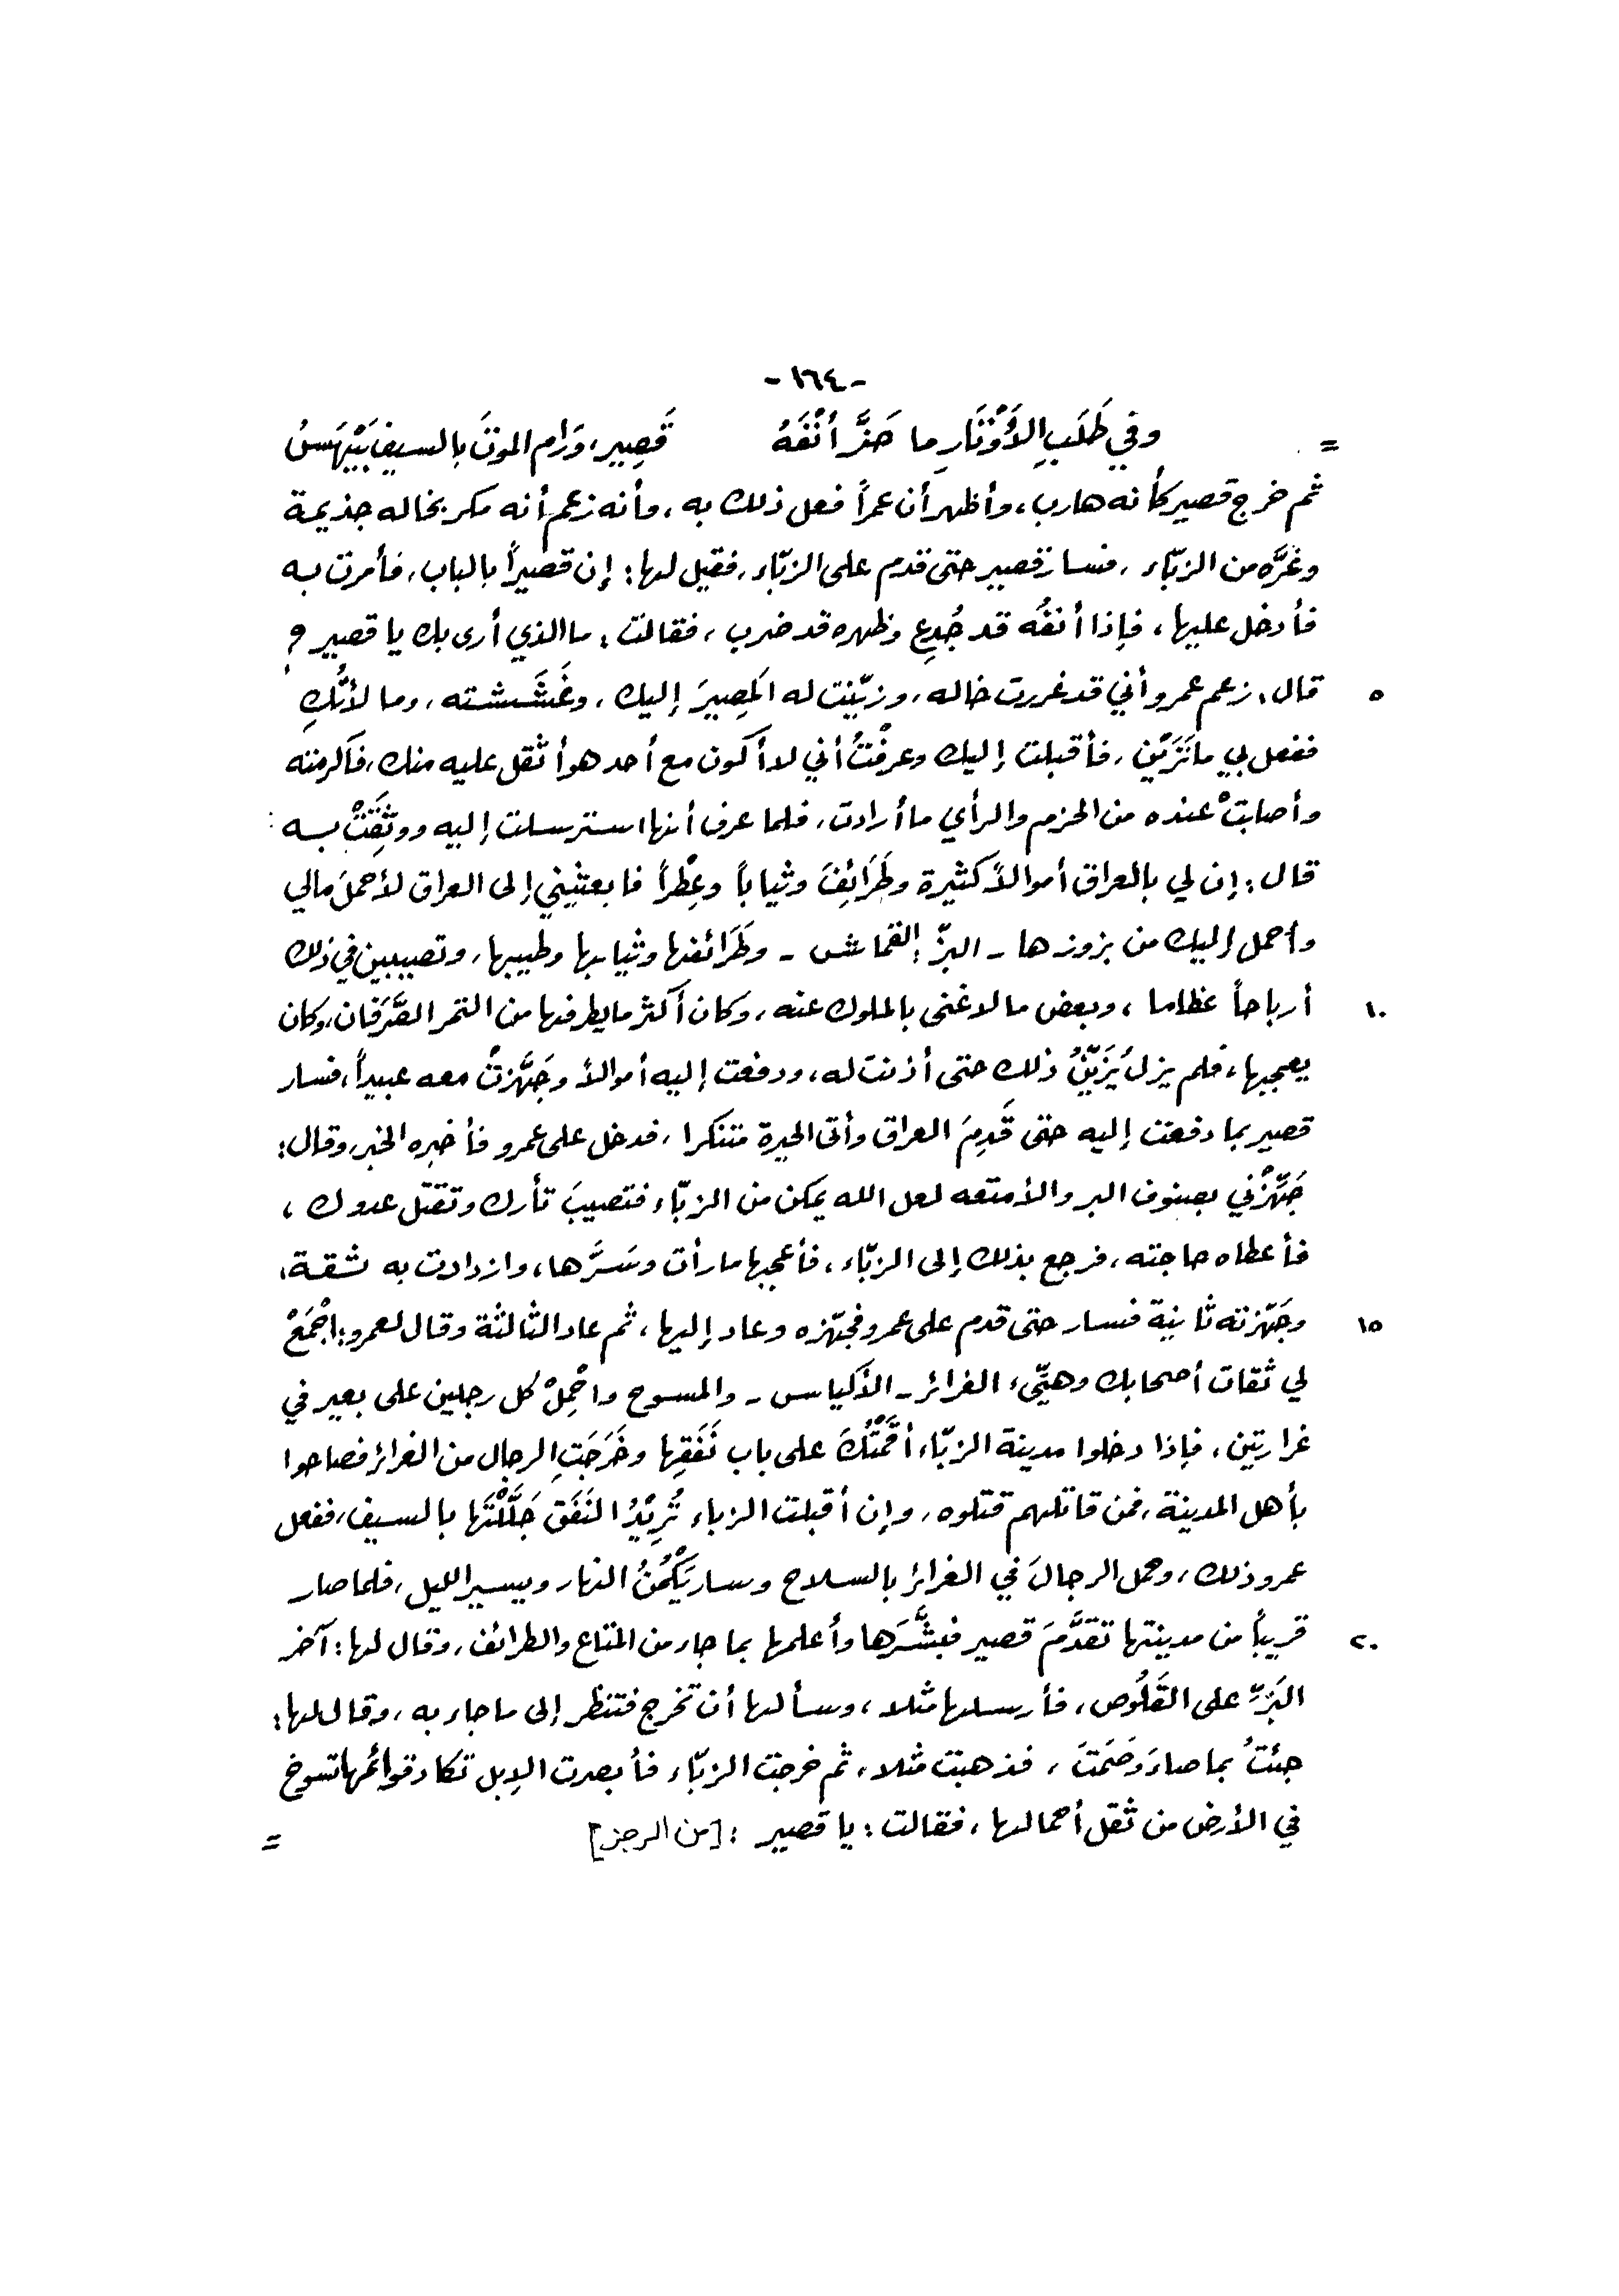 - ١٦٤ -
= وفي طَلَبِ الأَوْتَارِ ما حَزَّ أنْفَهُ قَصِير، وَرَام الموتَ بالسيفِ بَيْهَسُ
ثم خرج قصير كأنه هارب، وأظهر أن عمراً فعل ذلك به، وأنه زعم أنه مكر بخاله جذيمة
وغرَّه من الزبّاء، فسار قصير حتى قدم على الزبّاء، فقيل لها: إن قصيراً بالباب، فأمرت به
فأدخل عليها، فإذا أنفُه قد جُدِع وظهره قد ضرب، فقالت: ما الذي أرى بك يا قصير؟
٥ قال: زعم عمرو أني قد غررت خاله، وزيّنت له المَصِيرَ إليك، وغَشَشته، وما لأتُكِ
ففعل بي ما تَرَيْن، فأقبلت إليك وعرفْتُ أني لا أكون مع أحد هو أثقل عليه منك، فأكرمته
وأصابتْ عنده من الحزم والرأي ما أرادت، فلما عرف أنها استرسلت إليه ووثِقَتْ به
قال: إن لي بالعراق أموالاً كثيرة وطَرَائِفَ وثياباً وعِطْراً فابعثيني إلى العراق لأحملَ مالي
وأحمل إليك من بزوزها - البزّ: القماش - وطَرَائفها وثيابها وطيبها، وتصيبين في ذلك
١٠ أرباحاً عظاما، وبعض ما لا غنى بالملوك عنه، وكان أكثر ما يطرفها من التمر الصَّرَفان، وكان
يعجبها، فلم يزل يُزَيِّنُ ذلك حتى أذنت له، ودفعت إليه أموالاً وجَهَّزتْ معه عبيداً، فسار
قصير بما دفعت إليه حتى قَدِمَ العراق وأتى الحيرة متنكرا، فدخل على عمرو فأخبره الخبر، وقال:
جَهِّزْني بصنوف البر والأمتعه لعل الله يمكن من الزبّاء فتصيبَ ثأرك وتقتل عدوك،
فأعطاه حاجته، فرجع بذلك إلى الزبّاء، فأعجبها ما رأت وسَرَّها، وازدادت به ثقة،
١٥ وجَهّزته ثانية فسار حتى قدم على عمرو فجهّزه وعاد إليها، ثم عاد الثالثة وقال لعمرو: اجْمَعْ
لي ثقات أصحابك وهيّىء الغرائر - الأكياس - والمسوح واحْمِلْ كل رجلين على بعير في
غرارتين، فإذا دخلوا مدينة الزبّاء أقَمْتُكَ على باب نَفَقِها وخَرَجَتِ الرجال من الغرائر فصاحوا
بأهل المدينة، فمن قاتلهم قتلوه، وإن أقبلت الزباء تُرِيْدُ النَفَق جَلَّلْتَها بالسيف، ففعل
عمرو ذلك، وحمل الرجالَ في الغرائر بالسلاح وسار يَكْمُنُ النهار ويسير الليل، فلما صار
٢٠ قريباً من مدينتها تقدَّمَ قصير فبشَّرَها وأعلمها بما جاء من المتاع والطرائف، وقال لها: آخر
البَزِّ على القَلُوص، فأرسلها مثلا، وسألها أن تخرج فتنظر إلى ما جاء به، وقال لها:
جئتُ بما صاءَ وصَمَتَ، فذهبت مثلا، ثم خرجت الزبّاء فأبصرت الإبل تكاد قوائمها تسوخ
في الأرض من ثقل أحمالها، فقالت: يا قصير: [من الرجز] =